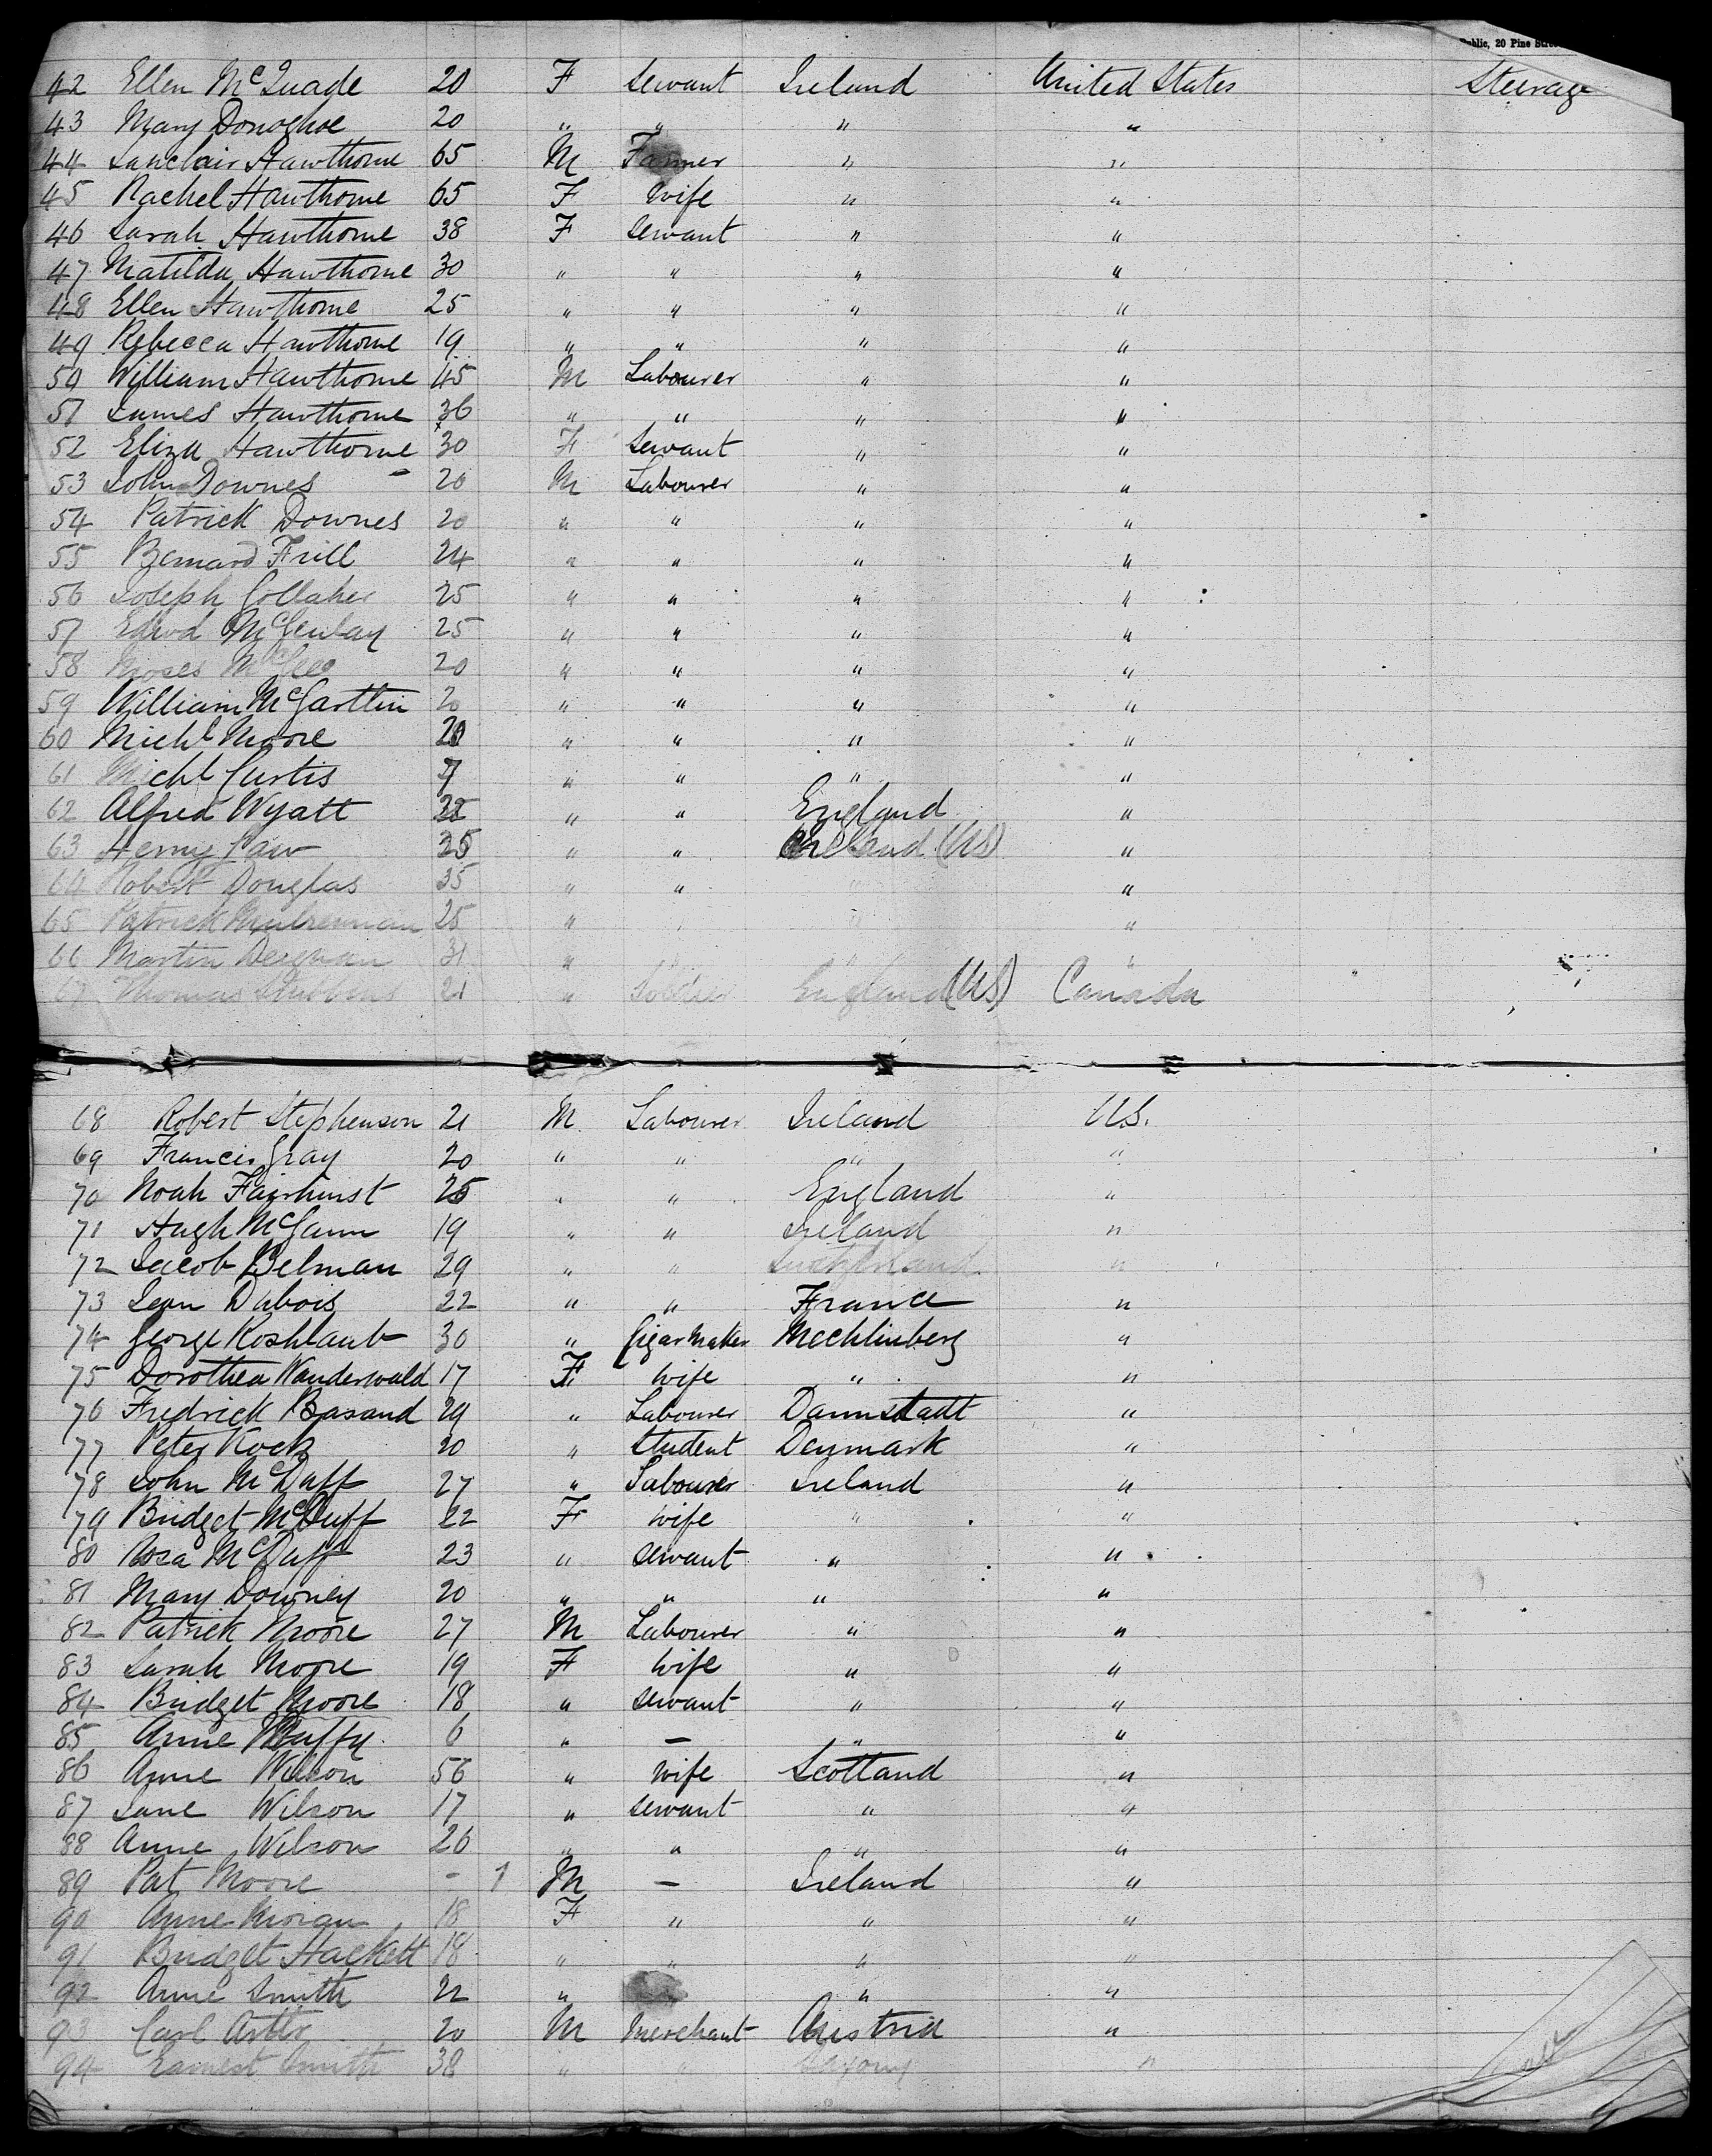 Public, 20 Pine Stre
42 Ellen McQuade 20 F Servant Ireland United States Steerage
43 Mary Donoghoe 20 " " " "
44 Sanclair Hawthorne 65 M Farmer " "
45 Rachel Hawthorne 65 F Wife " "
46 Sarah Hawthorne 38 F Servant " "
47 Matilda Hawthorne 30 " " " "
48 Ellen Hawthorne 25 " " " "
49 Rebecca Hawthorne 19 " " " "
50 William Hawthorne 45 M Labourer " "
51 James Hawthorne 36 " " " "
52 Eliza Hawthorne 30 F Servant " "
53 John Downes 20 M Labourer " "
54 Patrick Downes 20 " " " "
55 Bernard Frill 24 " " " "
56 Joseph Gollaher 25 " " " "
57 Edwd 25 " " " "
58 Moses McGee 20 " " " "
59 William McGarttin 20 " " " "
60 Michl Moore 20 " " " "
61 Michl Curtis " " " "
62 Alfred Wyatt " " England "
63 Henry 25 " " Ireland (US) "
64 Robert Douglas 35 " " " "
65 Patrick 25 " " " "
66 Martin 31 " " " "
67 Thomas Stubbens 21 " Soldier England (US) Canada
68 Robert Stephenson 21 M Labourer Ireland U.S.
69 Francis Gray 20 " " " "
70 Noah Fairhurst 25 " " England "
71 Hugh McGann 19 " " Ireland "
72 Jacob Belman 29 " " "
73 Jean Dubois 22 " " France "
74 George Roshlaub 30 " Cigar Maker Mechlinberg "
75 Dorothea Wanderwald 17 F Wife " "
76 Fredrick Basand 29 " Labourer Darmstadt "
77 Peter Kock 20 " Student Denmark "
78 John McDuff 27 " Labourer Ireland "
79 Bridget McDuff 22 F Wife " "
80 Rosa McDuff 23 " Servant " "
81 Mary Downey 20 " " " "
82 Patrick Moore 27 M Labourer " "
83 Sarah Moore 19 F Wife " "
84 Bridget Moore 18 " Servant " "
85 Anne Duffy 6 " — " "
86 Anne Wilson 56 " Wife Scotland "
87 Jane Wilson 17 " Servant " "
88 Anne Wilson 26 " " " "
89 Pat Moore - 1 M — Ireland "
90 Anne Moran 18 F " " "
91 Bridget Hackett 18 " " " "
92 Anne Smith 22 " " "
93 Carl 20 M Merchant Austria "
94 Earnest Smith 38 " " Saxony "